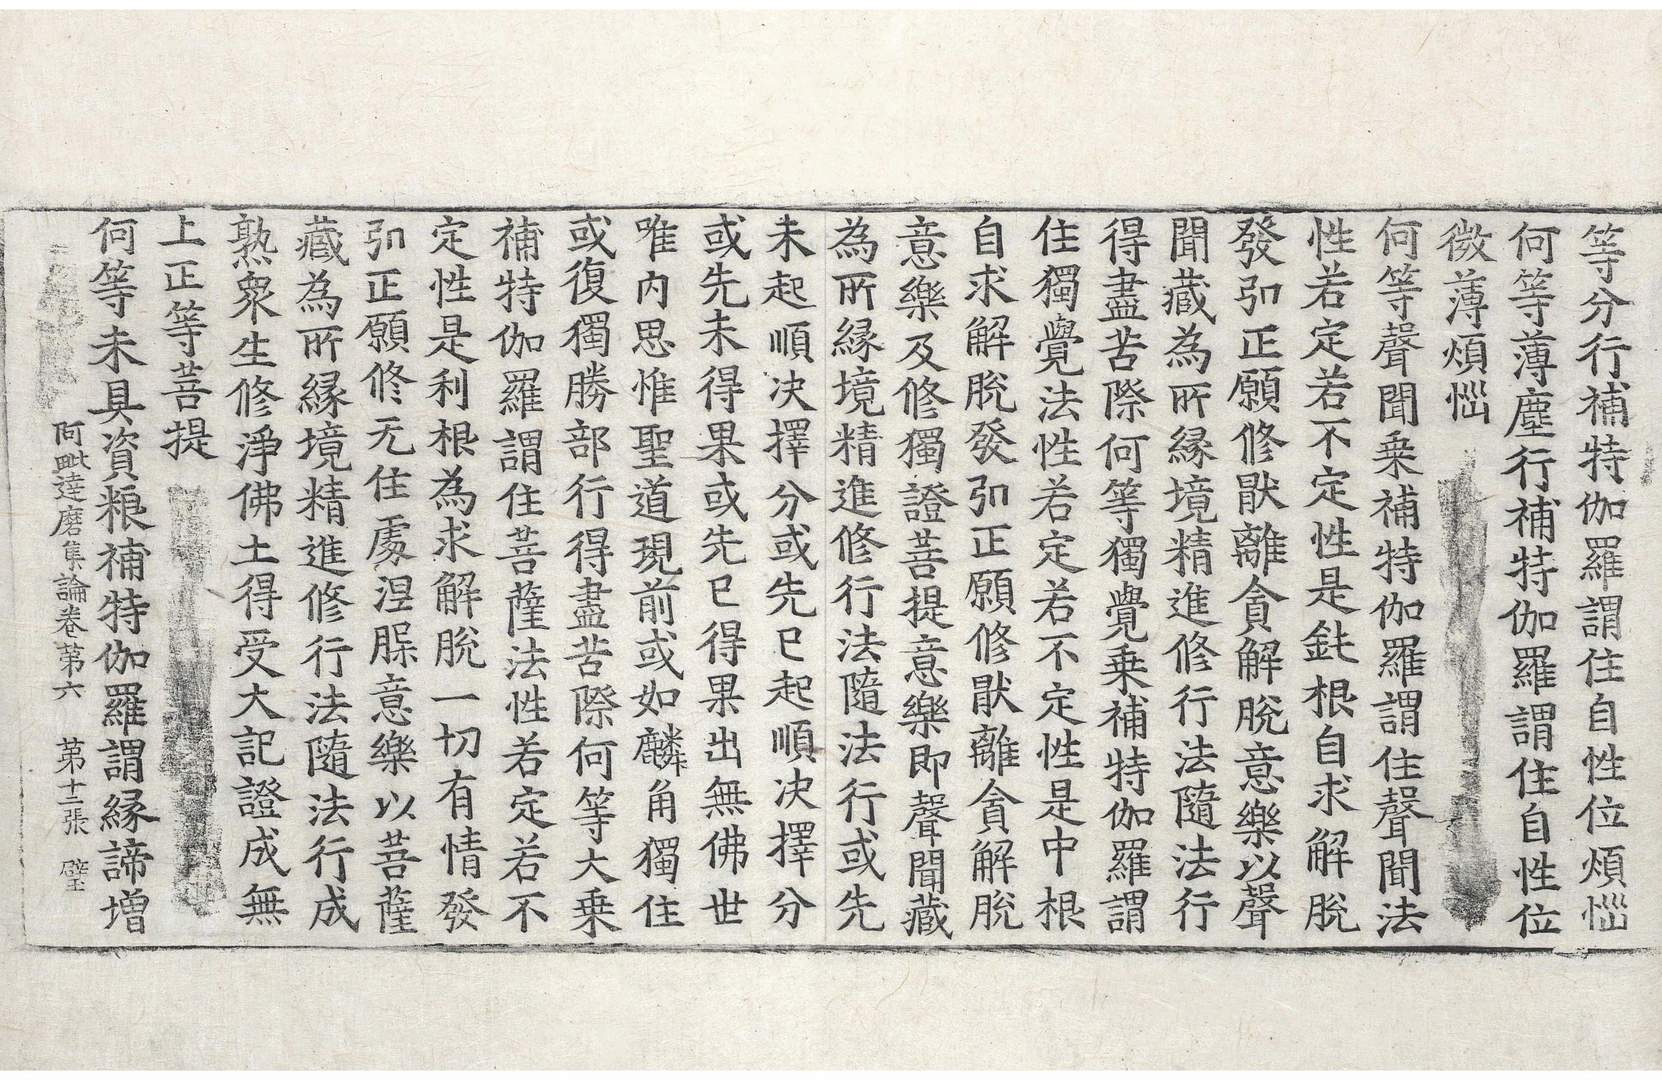 等分行補特伽羅謂住自性位煩惱
何等薄塵行補特伽羅謂住自性位
微薄煩惱
何等聲聞乗補特伽羅謂住聲聞法
性若定若不定性是鈍根自求解脫
發引正願修猒離貪解脫意樂以聲
聞藏為所縁境精進修行法隨法行
得盡苦際何等獨覺乗補特伽羅謂
住獨覺法性若定若不定性是中根
自求解脫發引正願修猒離貪解脫
意樂及修獨證菩提意樂即聲聞藏
為所縁境精進修行法隨法行或先
未起順决擇分或先已起順决擇分
或先未得果或先已得果出無佛世
唯内思惟聖道現前或如麟角獨住
或復獨勝部行得盡苦際何等大乗
補特伽羅謂住菩薩法性若定若不
定性是利根為求解脫一切有情發
引正願修无住處涅脲意樂以菩薩
藏為所縁境精進修行法隨法行成
熟衆生修淨佛土得受大記證成無
上正等菩提
何等未具資粮補特伽羅謂縁諦增
阿毗達磨集論卷第六 第十二張 璧